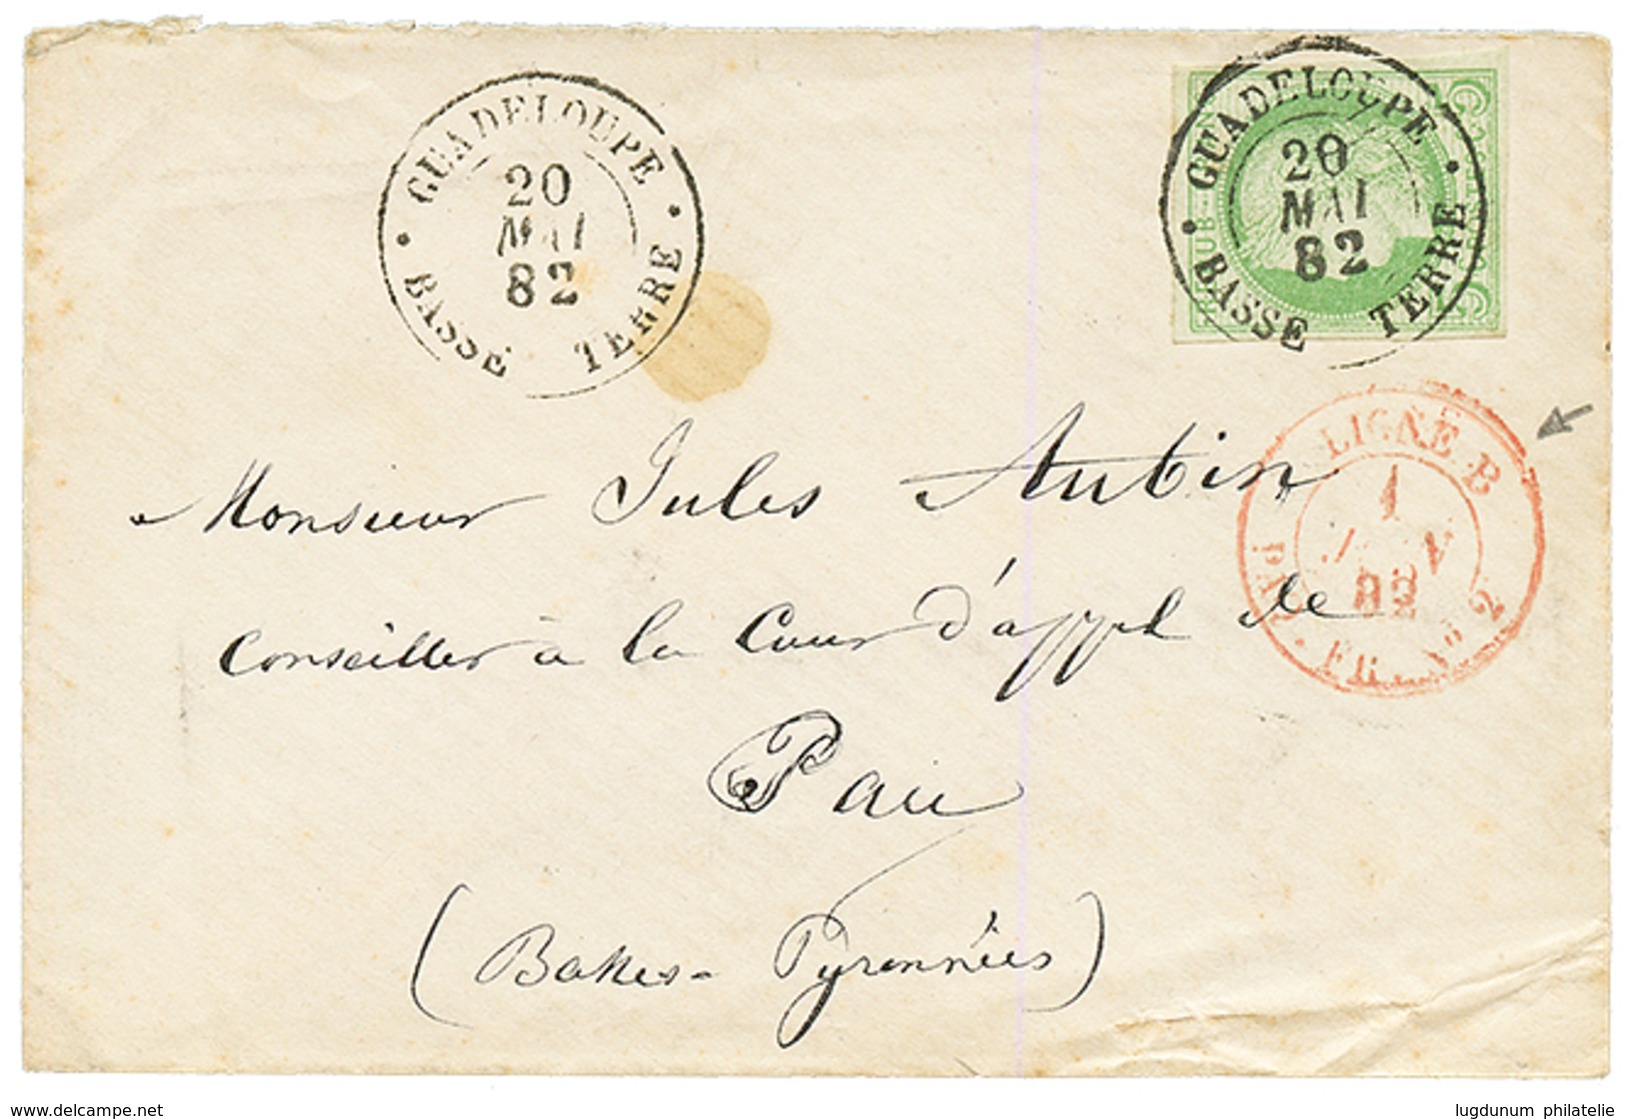 GUADELOUPE
20
MAI
82
BASSE TERRE
GUADELOUPE
20
MAI
82
BASSE TERRE
LIGNE B
1
82
PAQ. FR. No 2
Monsieur Jules Aubin
Conseiller à la Cour d'appel de
Pau
(Basses-Pyrennées)
delcampe.net
lugdunum philatelie